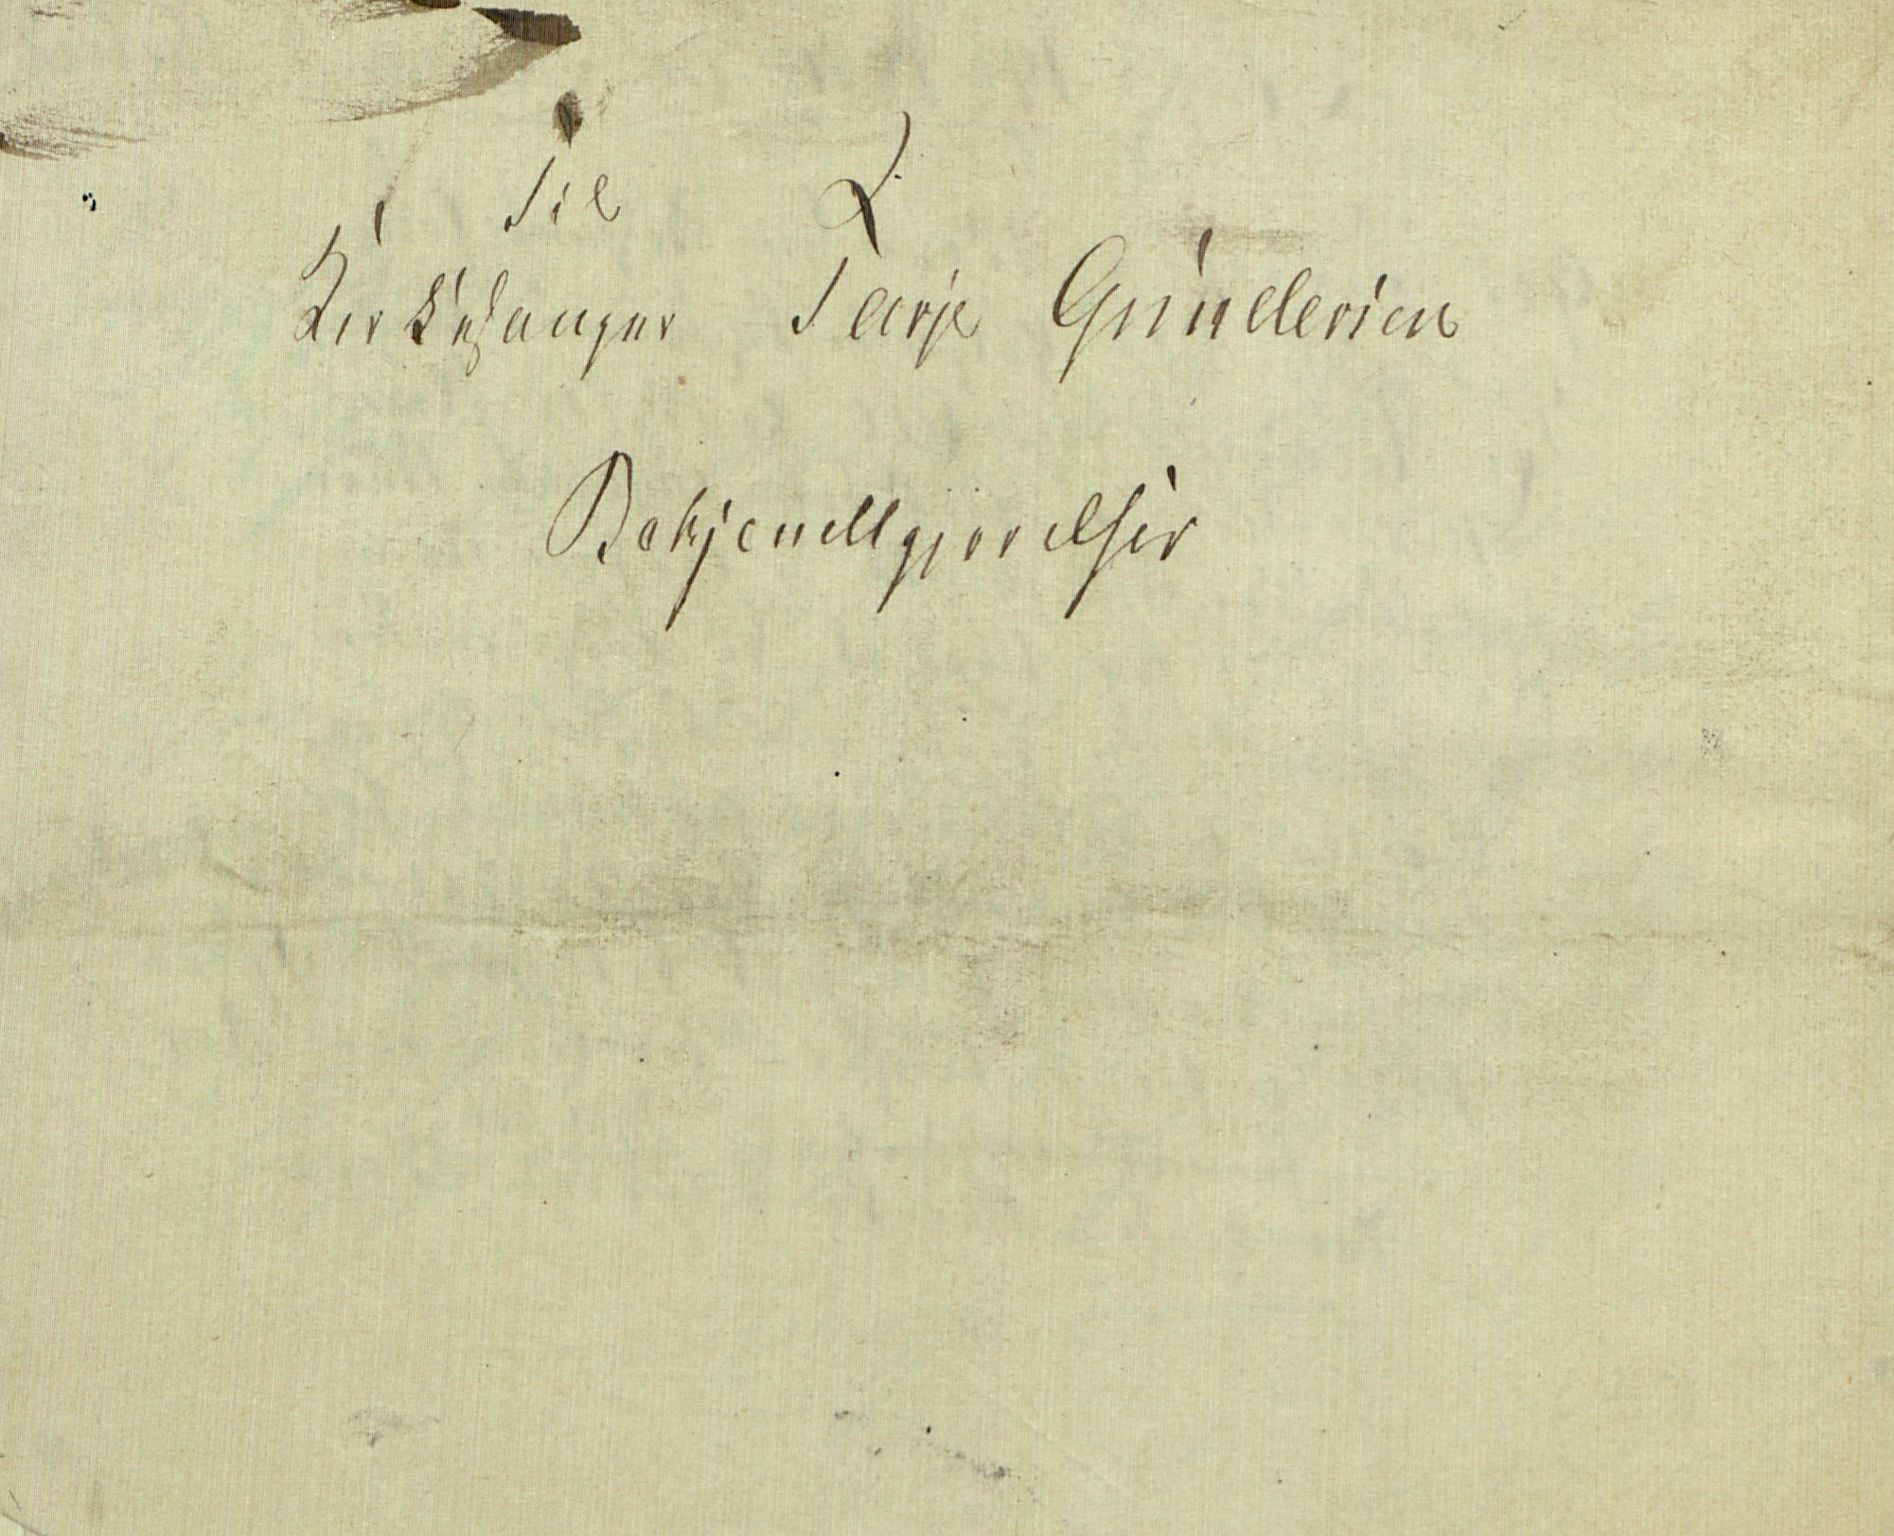 Til
Kirkesanger Tarje Gunderien
Bekjendtgjørelser